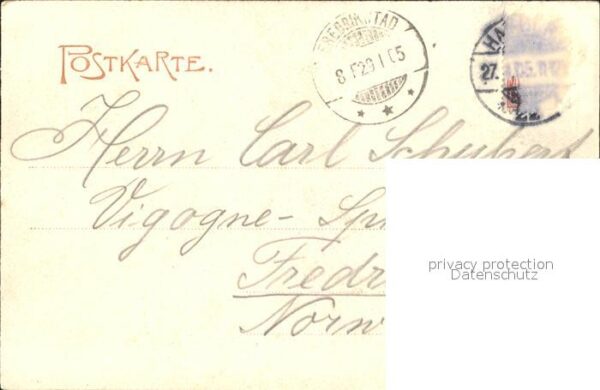 POSTKARTE.
FREDRIKSTAD
8 F 29 I 05
HA
27.
Herrn Carl Schubert
Vigogne- Sp
Fredr
Norw
privacy protection
Datenschutz